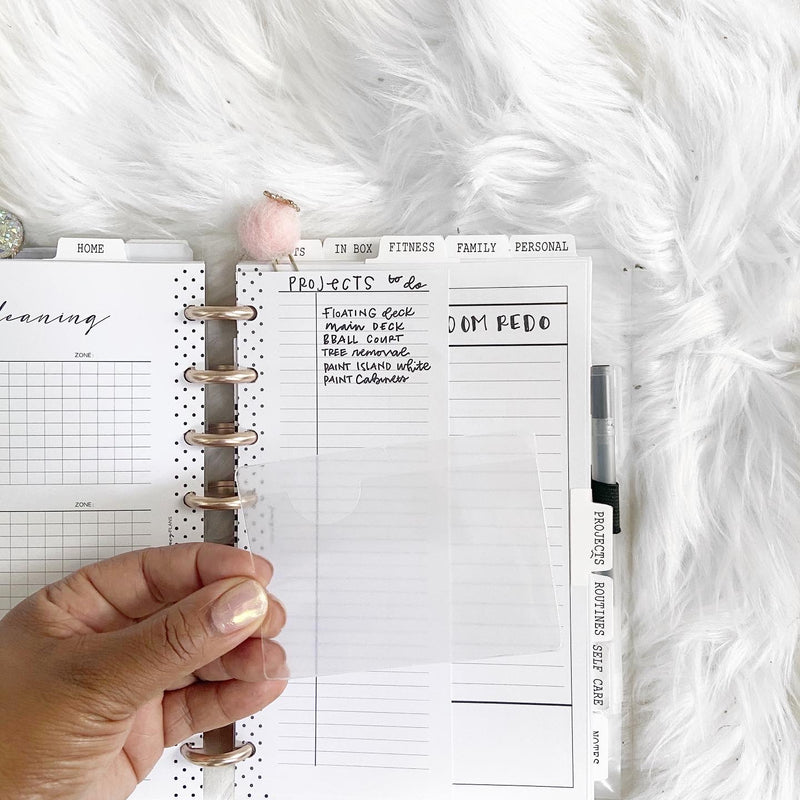 HOME
IN BOX
FITNESS
FAMILY
PERSONAL
PROJECTS to do
FLOATING deck
main DECK
BBALL COURT
TREE removal
PAINT ISLAND white
PAINT Cabinets
REDO
ZONE:
ZONE:
PROJECTS
ROUTINES
SELF CARE
NOTES